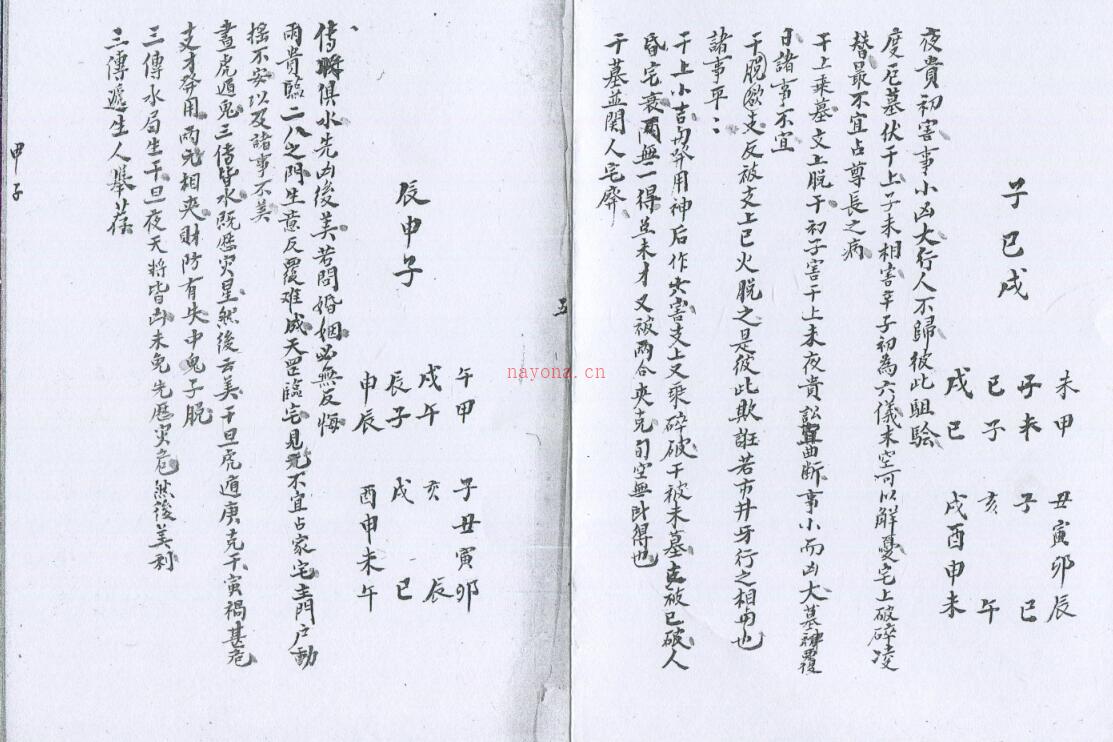 子巳戌
未甲
子未
巳子
戌巳
丑寅卯辰
子　　巳
亥　　午
戌酉申未
夜貴初害事小凶大行人不歸彼此駔驗
度厄墓伏干上子未相害幸子初為六儀未空可以解憂宅上破碎凌
替最不宜占尊長之病
干上乘墓支上脫干初子害干上未夜貴訟宜曲断事小而凶大墓神覆
日諸事不宜
干脫欲支反破支上巳火脫之是彼此欺誑若市井牙行之相由也
諸事平平
干上小吉旬癸用神后作六害支上又乘碎破干被未墓支被巳破人
衰宅衰兩無一得且未才又被兩合夾克旬空無財得也
干墓並関人宅廃
五
辰申子
午甲
戌午
辰子
申辰
子丑寅卯
亥　　辰
戌　　巳
酉申未午
傳將俱水先凶後美若問婚姻必無反悔
兩貴臨二八之門生意反覆难成天罡臨宅見元不宜占家宅主門户動
搖不安以及諸事不美
晝虎遁鬼三傳皆水既歷灾星然後云美干旦虎遁庚克干寅禍甚危
支才癸用兩元相夾財防有失中鬼子脫
三傳水局生干旦夜天將皆凶未免先歷灾危然後美利
三傳遞生人舉荐
甲子
nayona.cn